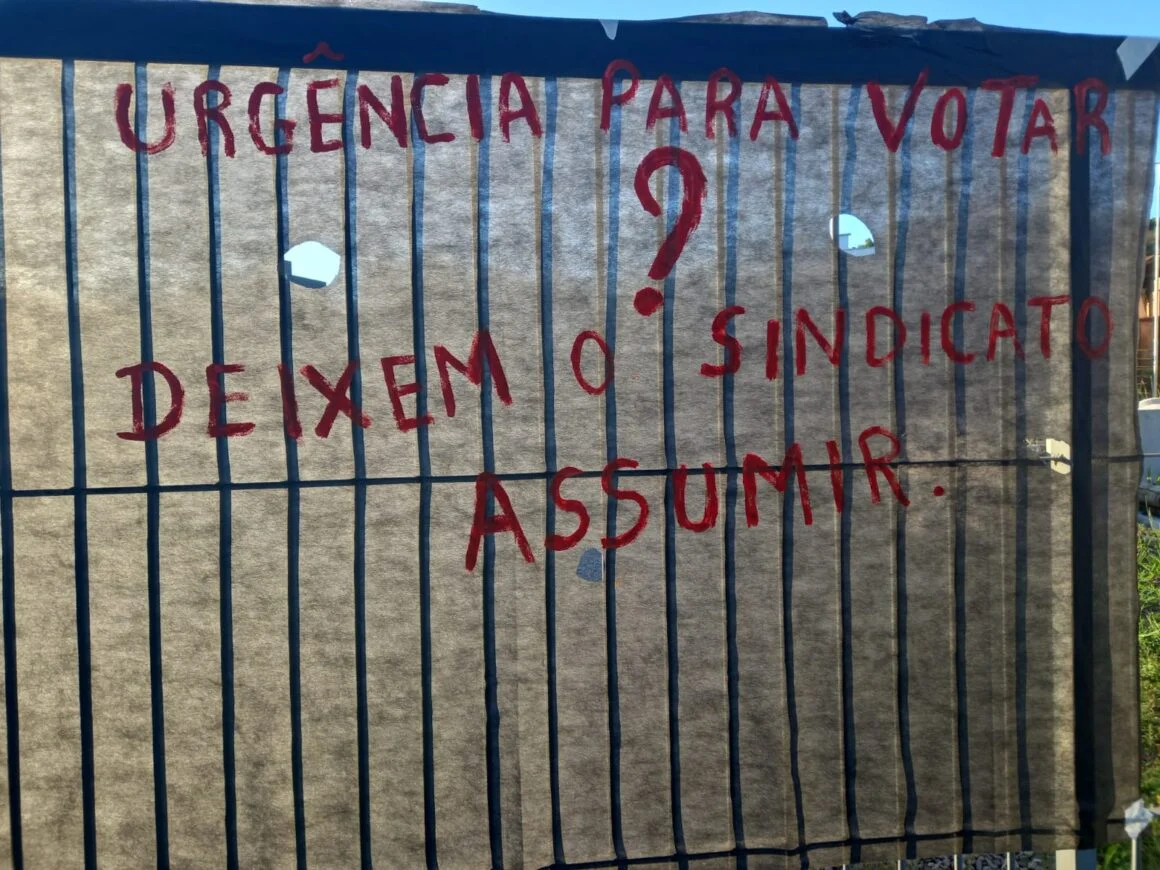 URGÊNCIA PARA VOTAR
?
DEIXEM O SINDICATO
ASSUMIR.